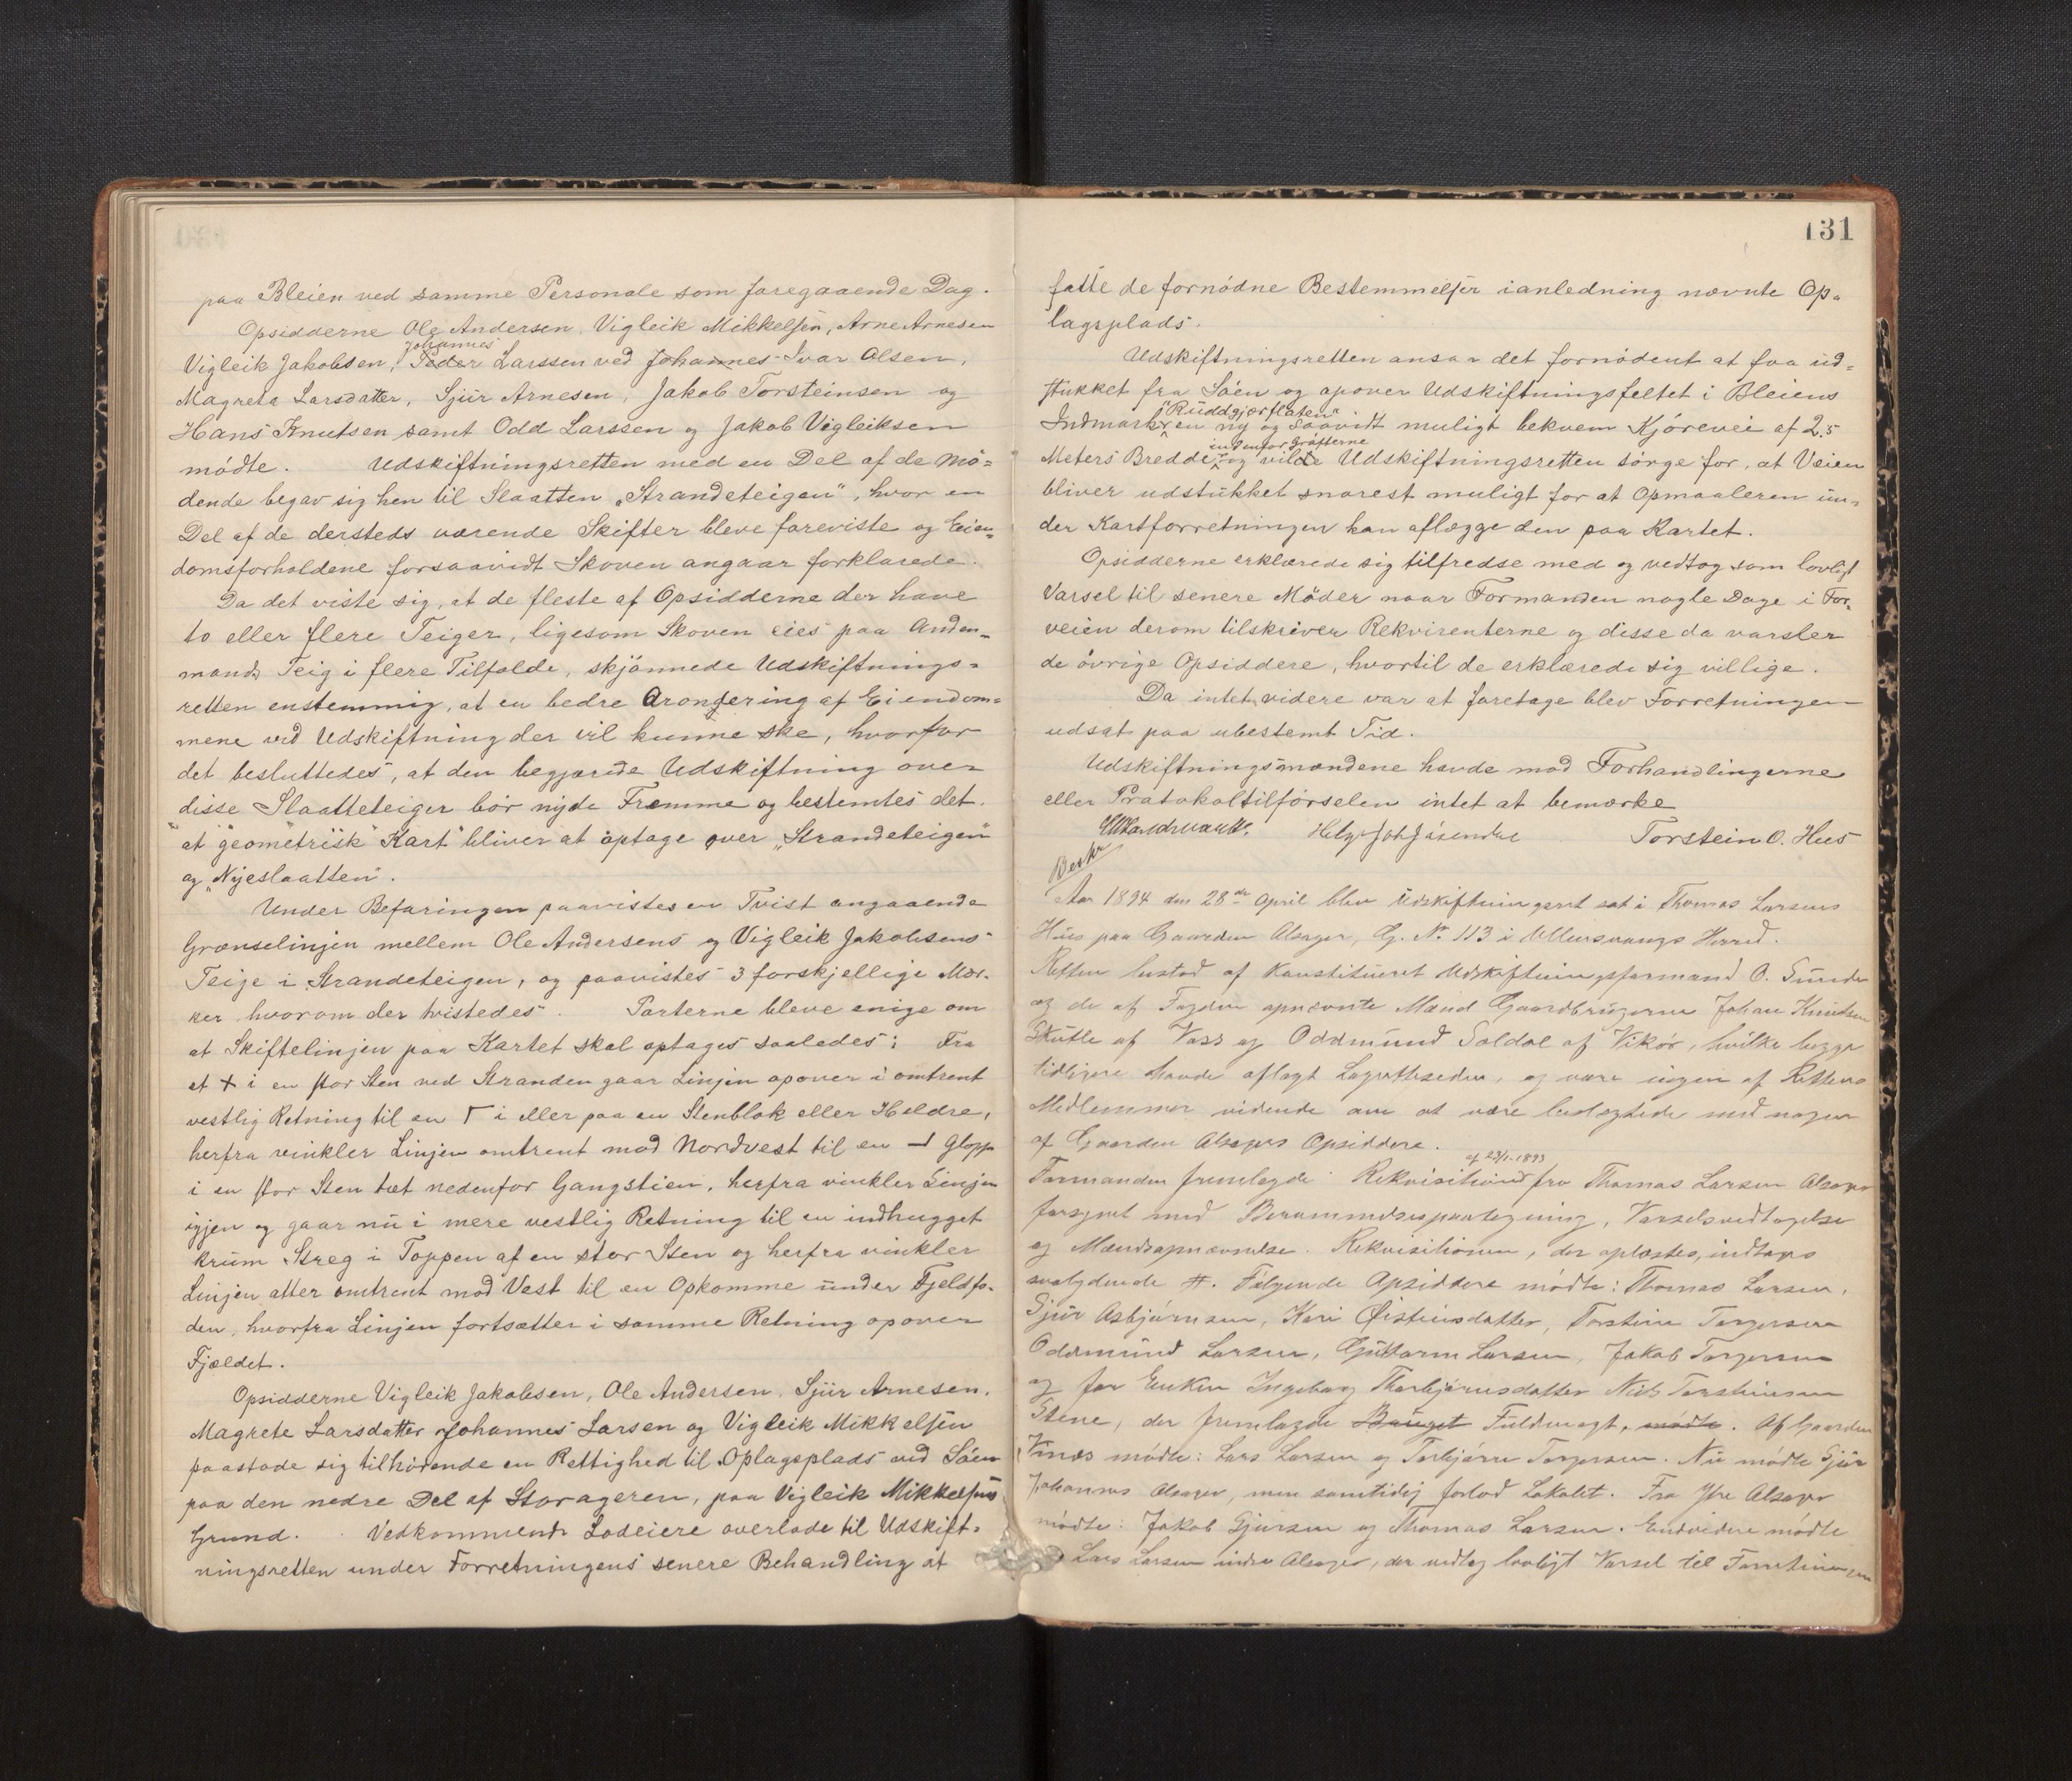 paa Bleien ved samme Personale som foregaaende Dag.
Opsidderne Ole Andersen, Vigleik Mikkelsen, Arne Arnesen
Johannes
Vigleik Jakobsen, Peder Larssen ved Johannes Ivar Olsen,
Magreta Larsdatter, Sjur Arnesen, Jakob Torsteinsen og
Hans Knutsen samt Odd Larssen og Jakob Vigleiksen
mödte. Udskiftningsretten med en Del af de Mö=
dende begav sig hen til Slaatten „Strandeteigen", hvor en
Del af de dersteds værende Skifter bleve foreviste og Eien=
domsforholdene forsaavidt Skoven angaar forklarede.
Da det viste sig, at de fleste af Opsidderne der have
to eller flere Teiger, ligesom Skoven eies paa Anden=
mands Teig i flere Tilfælde, skjönnede Udskiftnings=
retten enstemmig, at en bedre Arondering af Eiendom=
mene ved Udskiftning der vil kunne ske, hvorfor
det besluttedes, at den begjærede Udskiftning over
disse Slaatteteiger bör nyde Fremme og bestemtes det.
at geometrisk Kart bliver at optage over „Strandeteigen"
og „Nyeslaatten".
Under Befaringen paavistes en Tvist angaaende
Grænselinjen mellem Ole Andersens og Vigleik Jakobsens
Teige i Strandeteigen, og paavistes 3 forskjellige Mær.
ker hvorom der tvistedes. Parterne bleve enige om
at Skiftelinjen paa Kartet skal optages saaledes: Fra
et + i en stor Sten ved Stranden gaar Linjen opover i omtrent
vestlig Retning til en Γ i eller paa en Stenblok eller Heldre,
herfra vinkler Linjen omtrent mod Nordvest til en ⊣ Glopp
i en stor Sten tæt nedenfor Gangstien, herfra vinkler Linjen
igjen og gaar nu i mere vestlig Retning til en indhugget
krum Streg i Toppen af en stor Sten og herfra vinkler
Linjen atter omtrent mod Vest til en Opkomme under Fjeldfo.
den, hvorfra Linjen fortsætter i samme Retning opover
Fjældet.
Opsidderne Vigleik Jakobsen, Ole Andersen, Sjur Arnesen.
Magrete Larsdatter Johannes Larsen og Vigleik Mikkelsen
paastode sig tilhörende en Rettighed til Oplagsplads ved Söen
paa den nedre Del af Storageren, paa Vigleik Mikkelsens
Grund. Vedkommende Lodeiere overlode til Udskift=
ningsretten under Forretningens senere Behandling at
131
fatte de fornödne Bestemmelser ianledning nævnte Op=
lagsplads.
Udskiftningsretten ansaa det fornödent at faa ud=
stukket fra Söen og opover Udskiftningsfeltet i Bleiens
„Ruddgjærflaten"
Indmark en ny og saavidt muligt bekvem Kjörevei af 2.5
indenfor Gröfterne
Meters Bredde og vilde Udskiftningsretten sörge for, at Veien
bliver udstukket snarest muligt for at Opmaaleren un=
der Kartforretningen kan aflægge den paa Kartet.
Opsidderne erklærede sig tilfredse med og vedtog som lovligt
Varsel til senere Möder naar Formanden nogle Dage i For.
veien derom tilskriver Rekvirenterne og disse da varsler
de övrige Opsiddere, hvortil de erklærede sig villige.
Da intet videre var at foretage blev Forretningen
udsat paa ubestemt Tid.
Udskiftningsmændene havde mod Forhandlingerne
eller Protokoltilförselen intet at bemærke
Helge Joh Torstein O. Hus
Beskr
Aar 1894 den 28de April blev Udskiftningsret sat i Thomas Larsens
Hus paa Gaarden Alsager, G. No 113 i Ullensvangs Herred.
Retten bestod af konstitueret Udskiftningsformand O. Sunde
og de af Fogden opnævnte Mænd Gaardbrugerne Johan Knudsen
Skutle af Voss og Oddmund Soldal af Vikör, hvilke begge
tidligere havde aflagt Lagretteseden, og vare ingen af Rettens
Medlemmer vidende om at være beslegtede med nogen
af Gaarden Alsagers Opsiddere.
af 23/1-1893
Formanden fremlagde Rekvisition fra Thomas Larsen Alsager
forsynet med Berammelsespaategning, Varselsvedtagelse
og Mændsopnævnelse. Rekvisitionen, der oplæstes, indtages
saalydende #. Fölgende Opsiddere mödte: Thomas Larsen,
Sjur Asbjörnsen, Kari Øisteinsdatter, Torstein Torgersen
Oddmund Larsen, Guttorm Larsen, Jakob Torgersen
og for Enken Ingeborg Thorbjörnsdatter Nils Torsteinsen
Stene, der fremlagde Fuldmagt, mödte. Af Gaarden
mödte: Lars Larsen og Torbjörn Torgersen. Nu mödte Sjur
Johannes Alsager, men samtidig forlod Lokalet. Fra Ytre Alsager
mödte: Jakob Sjursen og Thomas Larsen. Endvidere mödte
Lars Larsen indre Alsager, der vedtog lovligt Varsel til Forretningen